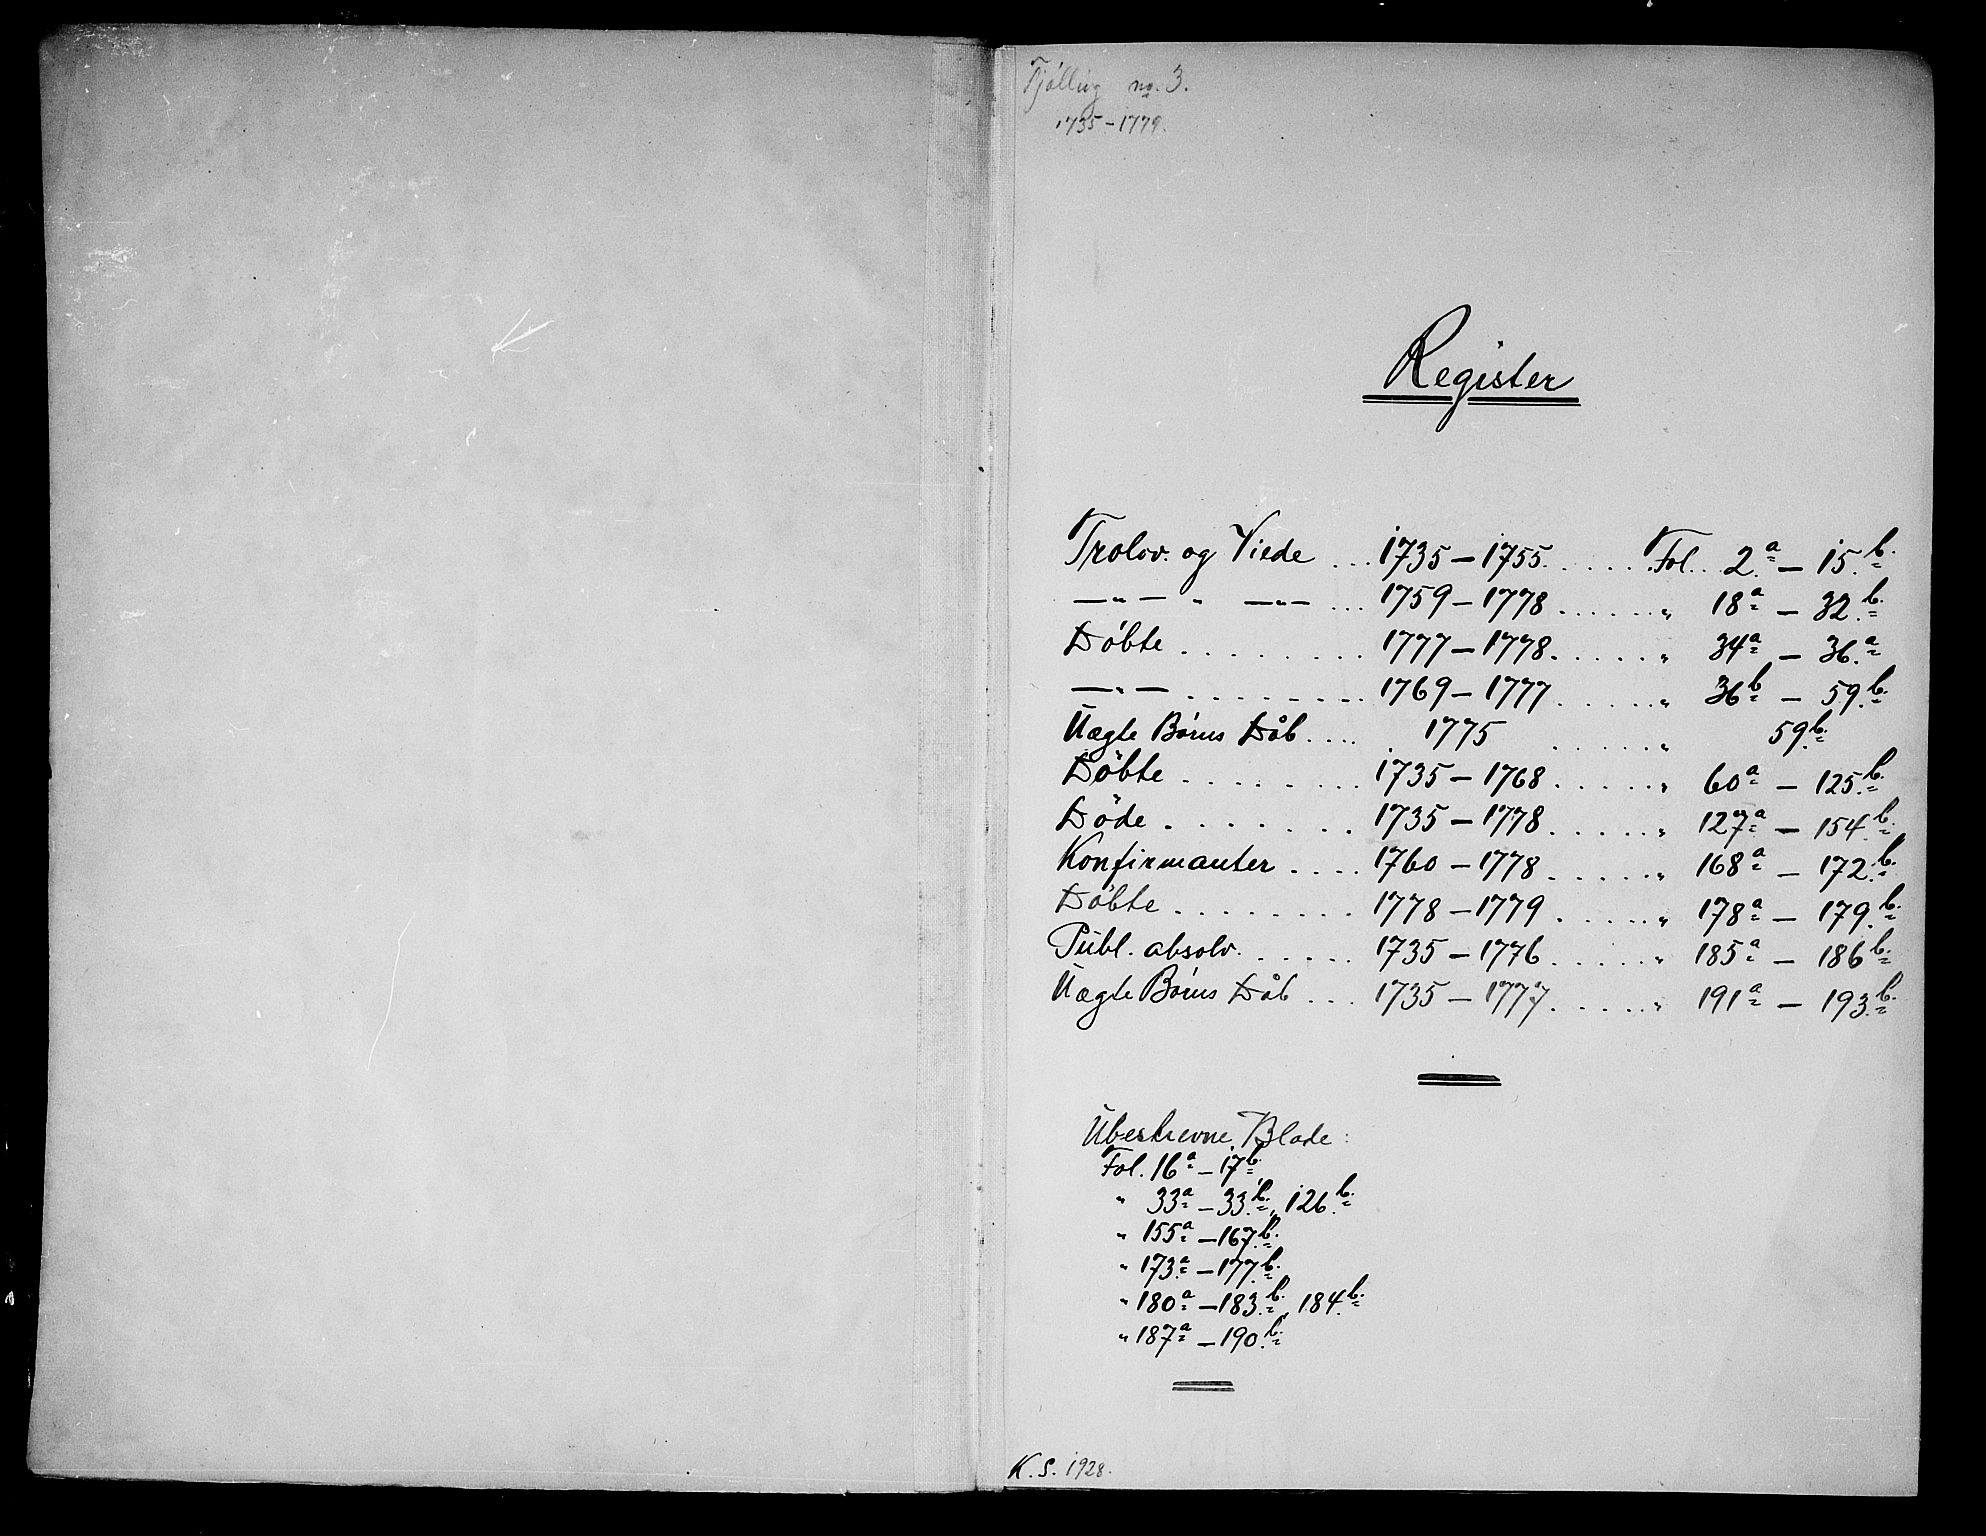 Tjølling no. 3.
1735-1779.
Register
Trolov. og Viede ... 1735 - 1755. ..... Fol. 2.a - 15.b.
-"- " -"- ... 1759 - 1778 ..... " 18a - 32.b.
Døbte ........ 1777 - 1778. ..... " 34a - 36.a
-"- ........ 1769 - 1777 ..... " 36b - 59.b.
Uægte Børns Dåb .... 1775 ..... " 59.b.
Døbte ........ 1735 - 1768 ..... " 60a - 125.b.
Døde ....... 1735 - 1778 ..... " 127a - 154.b.
Konfirmanter .... 1760 - 1778 ..... " 168a - 172.b.
Døbte ........ 1778 - 1779 ..... " 178a - 179.b.
Publ. absolv. ..... 1735 - 1776 ..... " 185a - 186b.
Uægte Børns Dåb ... 1735 - 1777 ..... " 191a - 193.b.
Ubeskrevne Blade:
Fol. 16a - 17b.
" 33a - 33.b., 126.b.
" 155a - 167.b.
" 173a - 177.b.
" 180a - 183.b., 184.b.
" 187a - 190.b.
K. S. 1928.